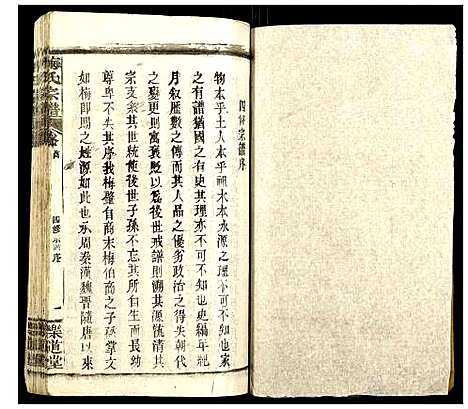 四修宗譜序
物本乎土人本乎祖水木本源之理不可忽也家
之有譜猶國之有史其理亦不可不明也史編年紀
月叙歷數之傳而其人品之優劣政治之得失朝代
之變更則寓褒貶以為後世戒譜則溯其源流清其
宗支系其世統使後世子孫不忘所自生而長
尊卑不失其序我梅肇自商末梅伯商之子孫掌文
如梅即賜之姓源如此也承周秦漢魏晉隨唐以來
梅氏宗譜
卷首
四修宗譜序
一
樂道堂